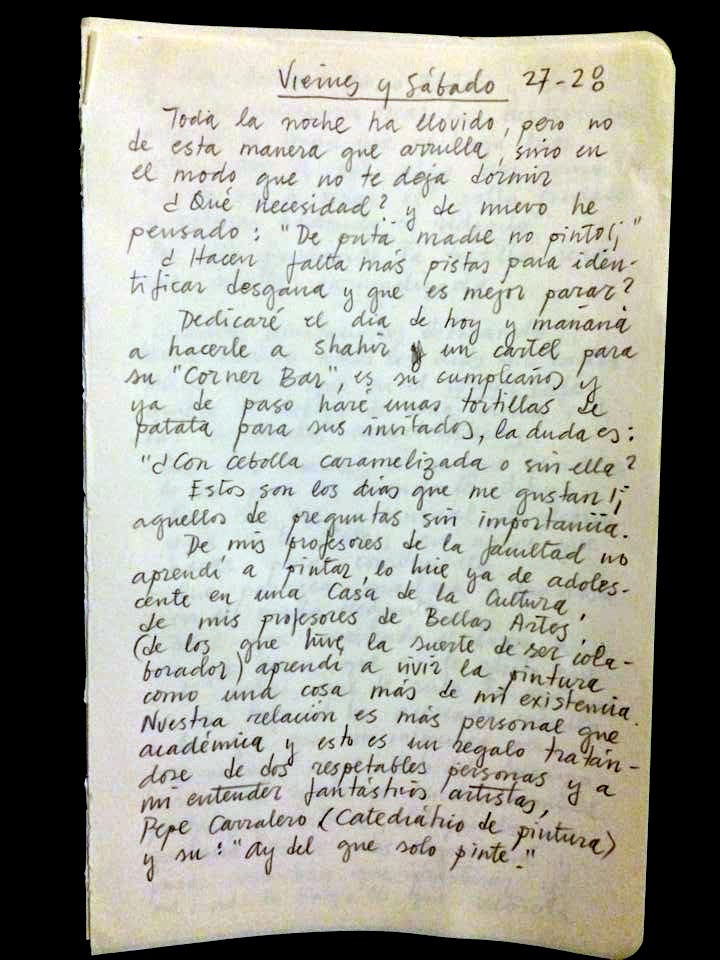 Viernes y Sábado 27-28
Toda la noche ha llovido, pero no
de esta manera que arrulla, sino en
el modo que no te deja dormir
¿Qué necesidad? y de nuevo he
pensado: "De puta madre no pinto!¡"
¿Hacen falta más pistas para iden-
tificar desgana y que es mejor parar?
Dedicaré el día de hoy y mañana
a hacerle a Shahir un cartel para
su "Corner Bar", es su cumpleaños y
ya de paso haré unas tortillas de
patata para sus invitados, la duda es:
"¿Con cebolla caramelizada o sin ella?
Estos son los días que me gustan!¡
aquellos de preguntas sin importancia.
De mis profesores de la facultad no
aprendí a pintar, lo hice ya de adoles-
cente en una Casa de la Cultura,
de mis profesores de Bellas Artes,
(de los que tuve la suerte de ser cola-
borador) aprendí a vivir la pintura
como una cosa más de mi existencia.
Nuestra relación es más personal que
académica y esto es un regalo tratán-
dose de dos respetables personas y a
mi entender fantásticos artistas,
Pepe Carralero (Catedrático de pintura)
y su: "ay del que solo pinte."